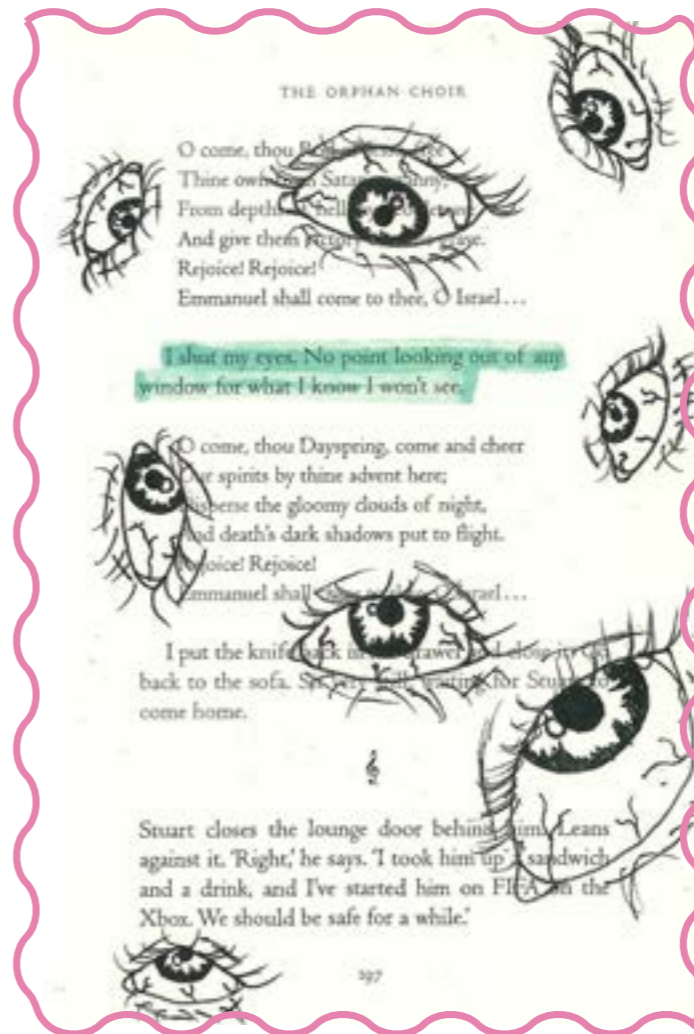 THE ORPHAN CHOIR
O come, thou
Thine own Satan
From depths hell
And give them victory grave.
Rejoice! Rejoice!
Emmanuel shall come to thee, O Israel...
I shut my eyes. No point looking out of any
window for what I know I won't see.
O come, thou Dayspring, come and cheer
Our spirits by thine advent here;
Disperse the gloomy clouds of night,
And death's dark shadows put to flight.
Rejoice! Rejoice!
Emmanuel shall Israel...
I put the knife back in drawer and close it. Go
back to the sofa. Sit very still, waiting for Stuart to
come home.
Stuart closes the lounge door behind him. Leans
against it. 'Right,' he says. 'I took him up a sandwich
and a drink, and I've started him on FIFA on the
Xbox. We should be safe for a while.'
197